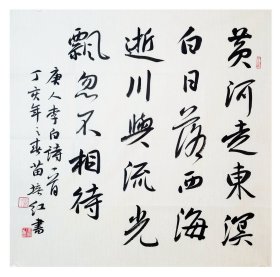 黄河走東溟
白日落西海
逝川與流光
飘忽不相待
唐人李白詩一首
丁亥年之春苗培红書